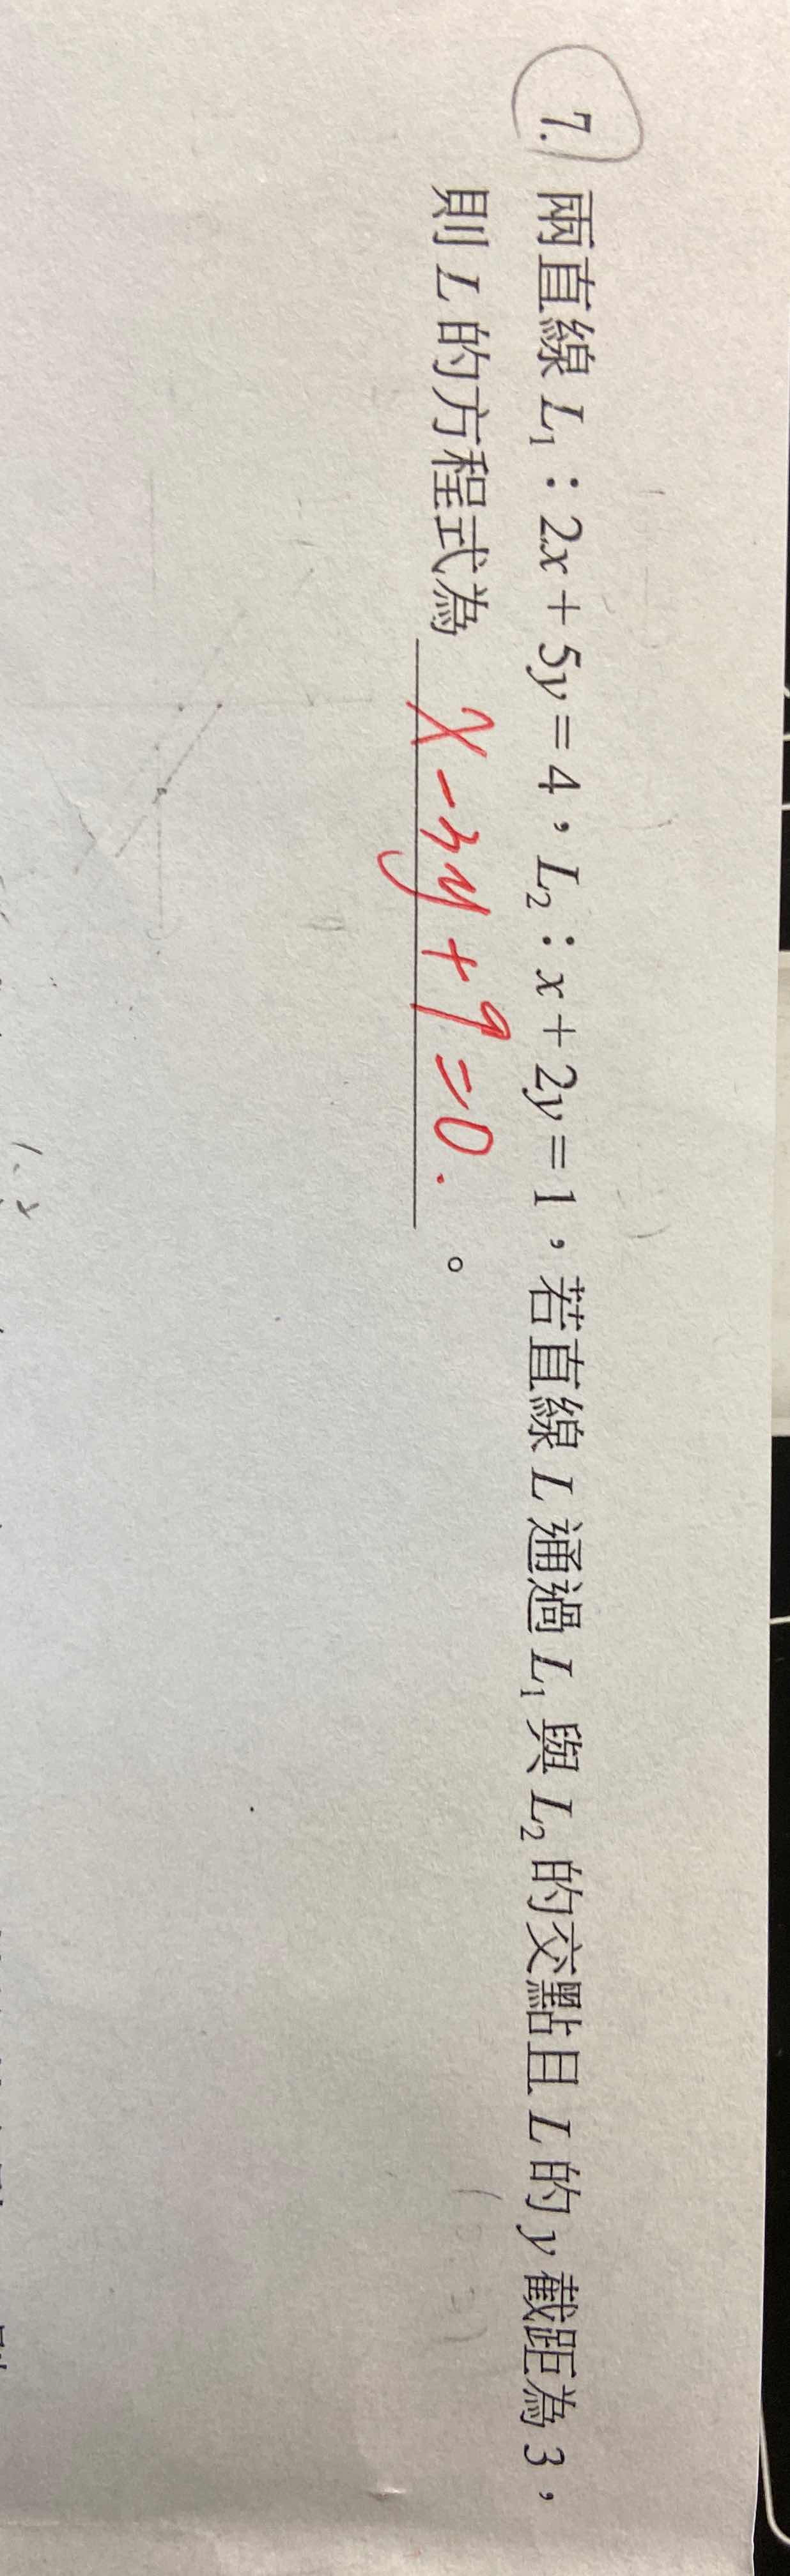 7. 兩直線 L₁：2x + 5y = 4，L₂：x + 2y = 1，若直線 L 通過 L₁ 與 L₂ 的交點且 L 的 y 截距為 3，
則 L 的方程式為 x - 3y + 9 = 0. 。